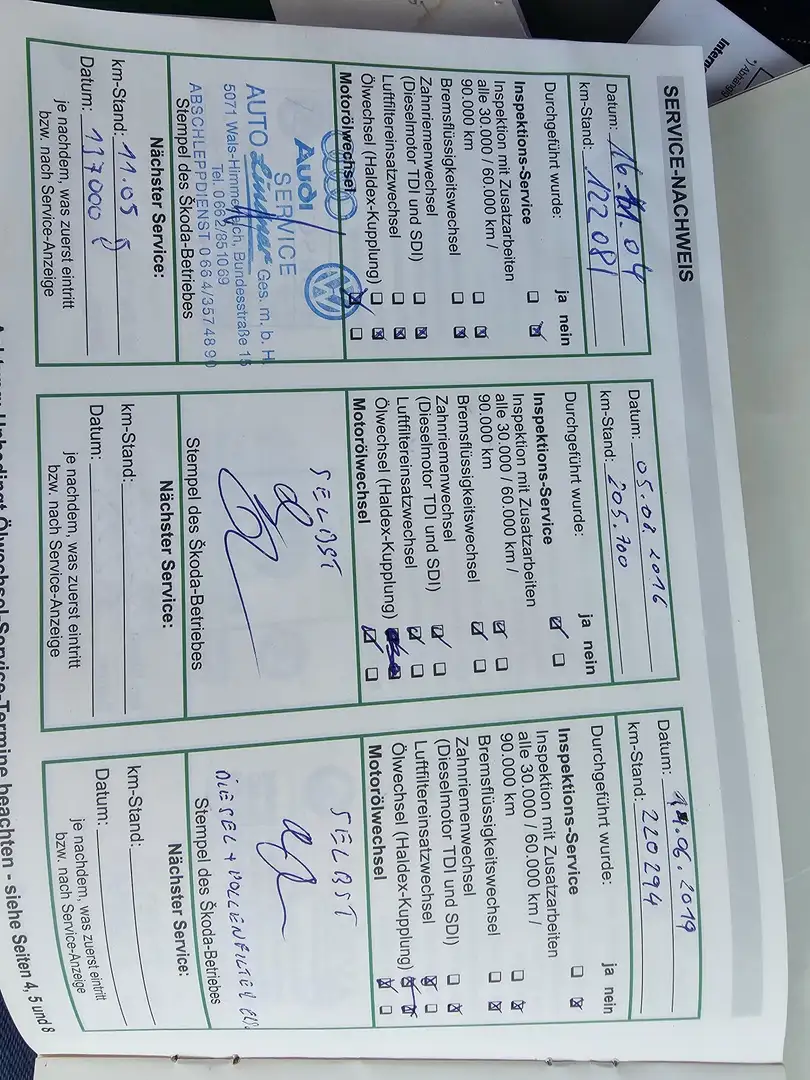 SERVICE-NACHWEIS
Datum: 16.11.04
km-Stand: 122 081
Durchgeführt wurde: ja nein
Inspektions-Service
Inspektion mit Zusatzarbeiten
alle 30.000 / 60.000 km /
90.000 km
Bremsflüssigkeitswechsel
Zahnriemenwechsel
(Dieselmotor TDI und SDI)
Luftfiltereinsatzwechsel
Ölwechsel (Haldex-Kupplung)
Motorölwechsel
Audi
SERVICE
AUTO Lindner Ges. m. b. H.
5071 Wals-Himmelreich, Bundesstraße 15
Tel. 0 662/85 10 69
ABSCHLEPPDIENST 0 664/357 48 90
Stempel des Škoda-Betriebes
Nächster Service:
km-Stand: 11.05
Datum: 137000
je nachdem, was zuerst eintritt
bzw. nach Service-Anzeige
Datum: 05.08.2016
km-Stand: 205.700
Durchgeführt wurde: ja nein
Inspektions-Service
Inspektion mit Zusatzarbeiten
alle 30.000 / 60.000 km /
90.000 km
Bremsflüssigkeitswechsel
Zahnriemenwechsel
(Dieselmotor TDI und SDI)
Luftfiltereinsatzwechsel
Ölwechsel (Haldex-Kupplung)
Motorölwechsel
SELBST
Stempel des Škoda-Betriebes
Nächster Service:
km-Stand:
Datum:
je nachdem, was zuerst eintritt
bzw. nach Service-Anzeige
Datum: 14.06.2019
km-Stand: 220294
Durchgeführt wurde: ja nein
Inspektions-Service
Inspektion mit Zusatzarbeiten
alle 30.000 / 60.000 km /
90.000 km
Bremsflüssigkeitswechsel
Zahnriemenwechsel
(Dieselmotor TDI und SDI)
Luftfiltereinsatzwechsel
Ölwechsel (Haldex-Kupplung)
Motorölwechsel
SELBST
DIESEL + POLLENFILTER
Stempel des Škoda-Betriebes
Nächster Service:
km-Stand:
Datum:
je nachdem, was zuerst eintritt
bzw. nach Service-Anzeige
Unbedingt Ölwechsel-Service-Termine beachten - siehe Seiten 4, 5 und 8